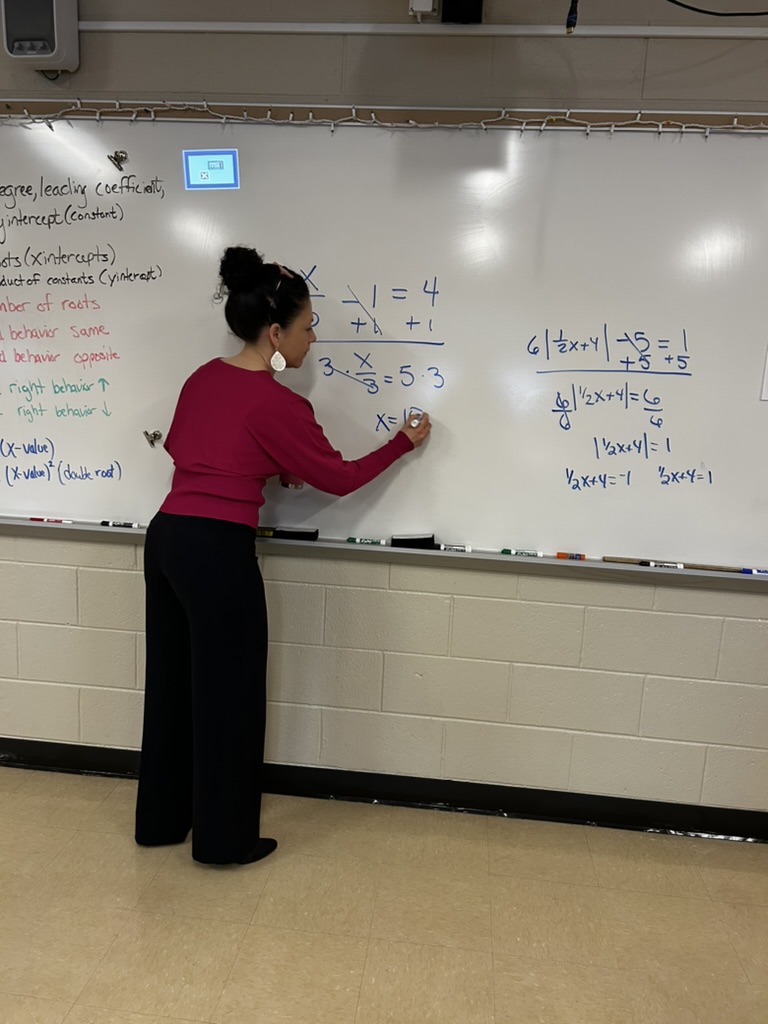 egree, leading coefficient,
y intercept (constant)
ots (x intercepts)
duct of constants (y intercept)
mber of roots
d behavior same
d behavior opposite
right behavior ↑
right behavior ↓
(x-value)
(x-value)² (double root)
x - 1 = 4
+1 +1
3 · x/3 = 5 · 3
x = 1
6|1/2x+4| - 5 = 1
+5 +5
6/6 |1/2x+4| = 6/6
|1/2x+4| = 1
1/2x+4 = -1 1/2x+4 = 1